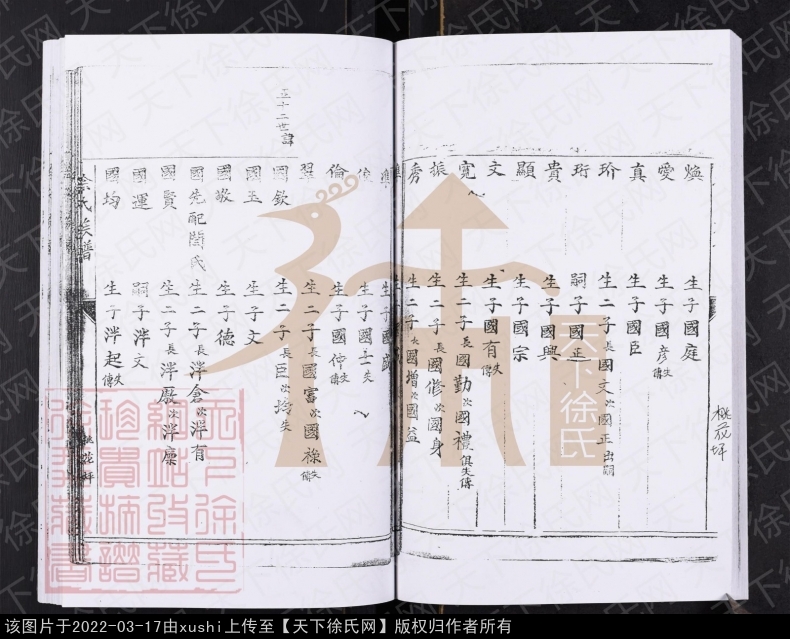 煥 生子國庭
愛 生子國彦失傳
真 生子國臣
玠 生二子長國文次國正出嗣
珩 嗣子國正
貴 生子國興
顯 生子國宗
文 生子國有失傳
寛 生二子長國勤次國禮俱失傳
振 生二子長國修次國身
秀 生二子長國增次國益
倫 生子國仲失傳
生二子長國富次國祿失傳
五十二世諱
國欽 生二子長臣次
國玉 生子文
國敬 生子德
國先配閻氏 生二子長泮倉次泮有
國賢 生二子長泮廒次泮廩
國運 嗣子泮文
國均 生子泮起失傳
徐氏族譜
桃花坪
桃花坪
天下徐氏
天下徐氏网
该图片于2022-03-17由xushi上传至【天下徐氏网】版权归作者所有